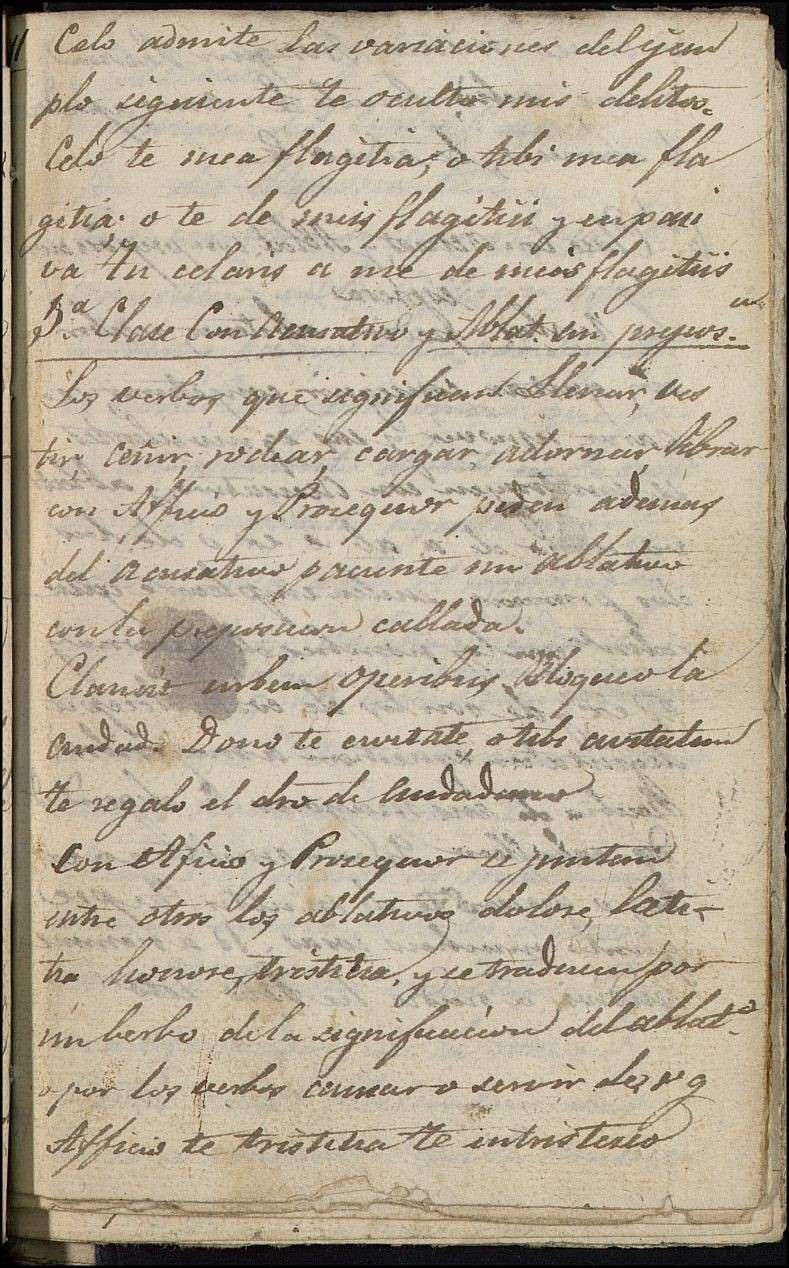 Celo admite las variaciones del ejem
plo siguiente te oculto mis delitos=
Celo te mea flagitia, o tibi mea fla
gitia. o te de meis flagitiis y en pasi
va tu celaris a me de meis flagitiis
5.ª Clase Con Acusativo y Ablat. sin prepos.on
Los verbos que significan Llenar, ves
tir ceñir, rodear, cargar adornar, librar
con Afficio y Prosequor piden ademas
del acusativo paciente un ablativo
con la preposicion callada.
Claudo urbem operibus, Bloqueo la
ciudad. Dono te civitate, o tibi civitatem
te regalo el dro de Ciudadano
Con Aficio y Prosequor se juntan
entre otros los ablativos dolore, laeti-
tia honore, tristitia, y se traducen por
un berbo de la significacion del ablat.o
o por los verbos causar o servir de, v g
Afficio te tristitia te entristezco